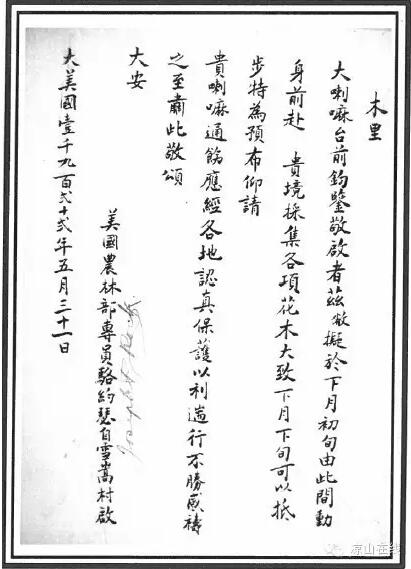 木里
大喇嘛台前鈞鑒敬啟者茲敝擬於下月初旬由此間動
身前赴　貴境採集各項花木大致下月下旬可以抵
步特為預布仰請
貴喇嘛通飭應經各地認真保護以利遄行不勝感禱
之至肅此敬頌
大安
美國農林部專員駱約瑟自雪嵩村啟
大美國壹千九百弍十弍年五月三十一日
凉山在线